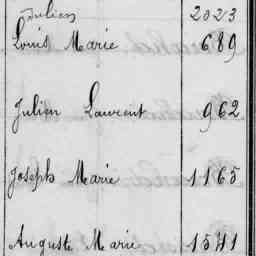 Julien 2023
Louis Marie 689
Julien Laurent 962
Joseph Marie 1165
Auguste Marie 1541